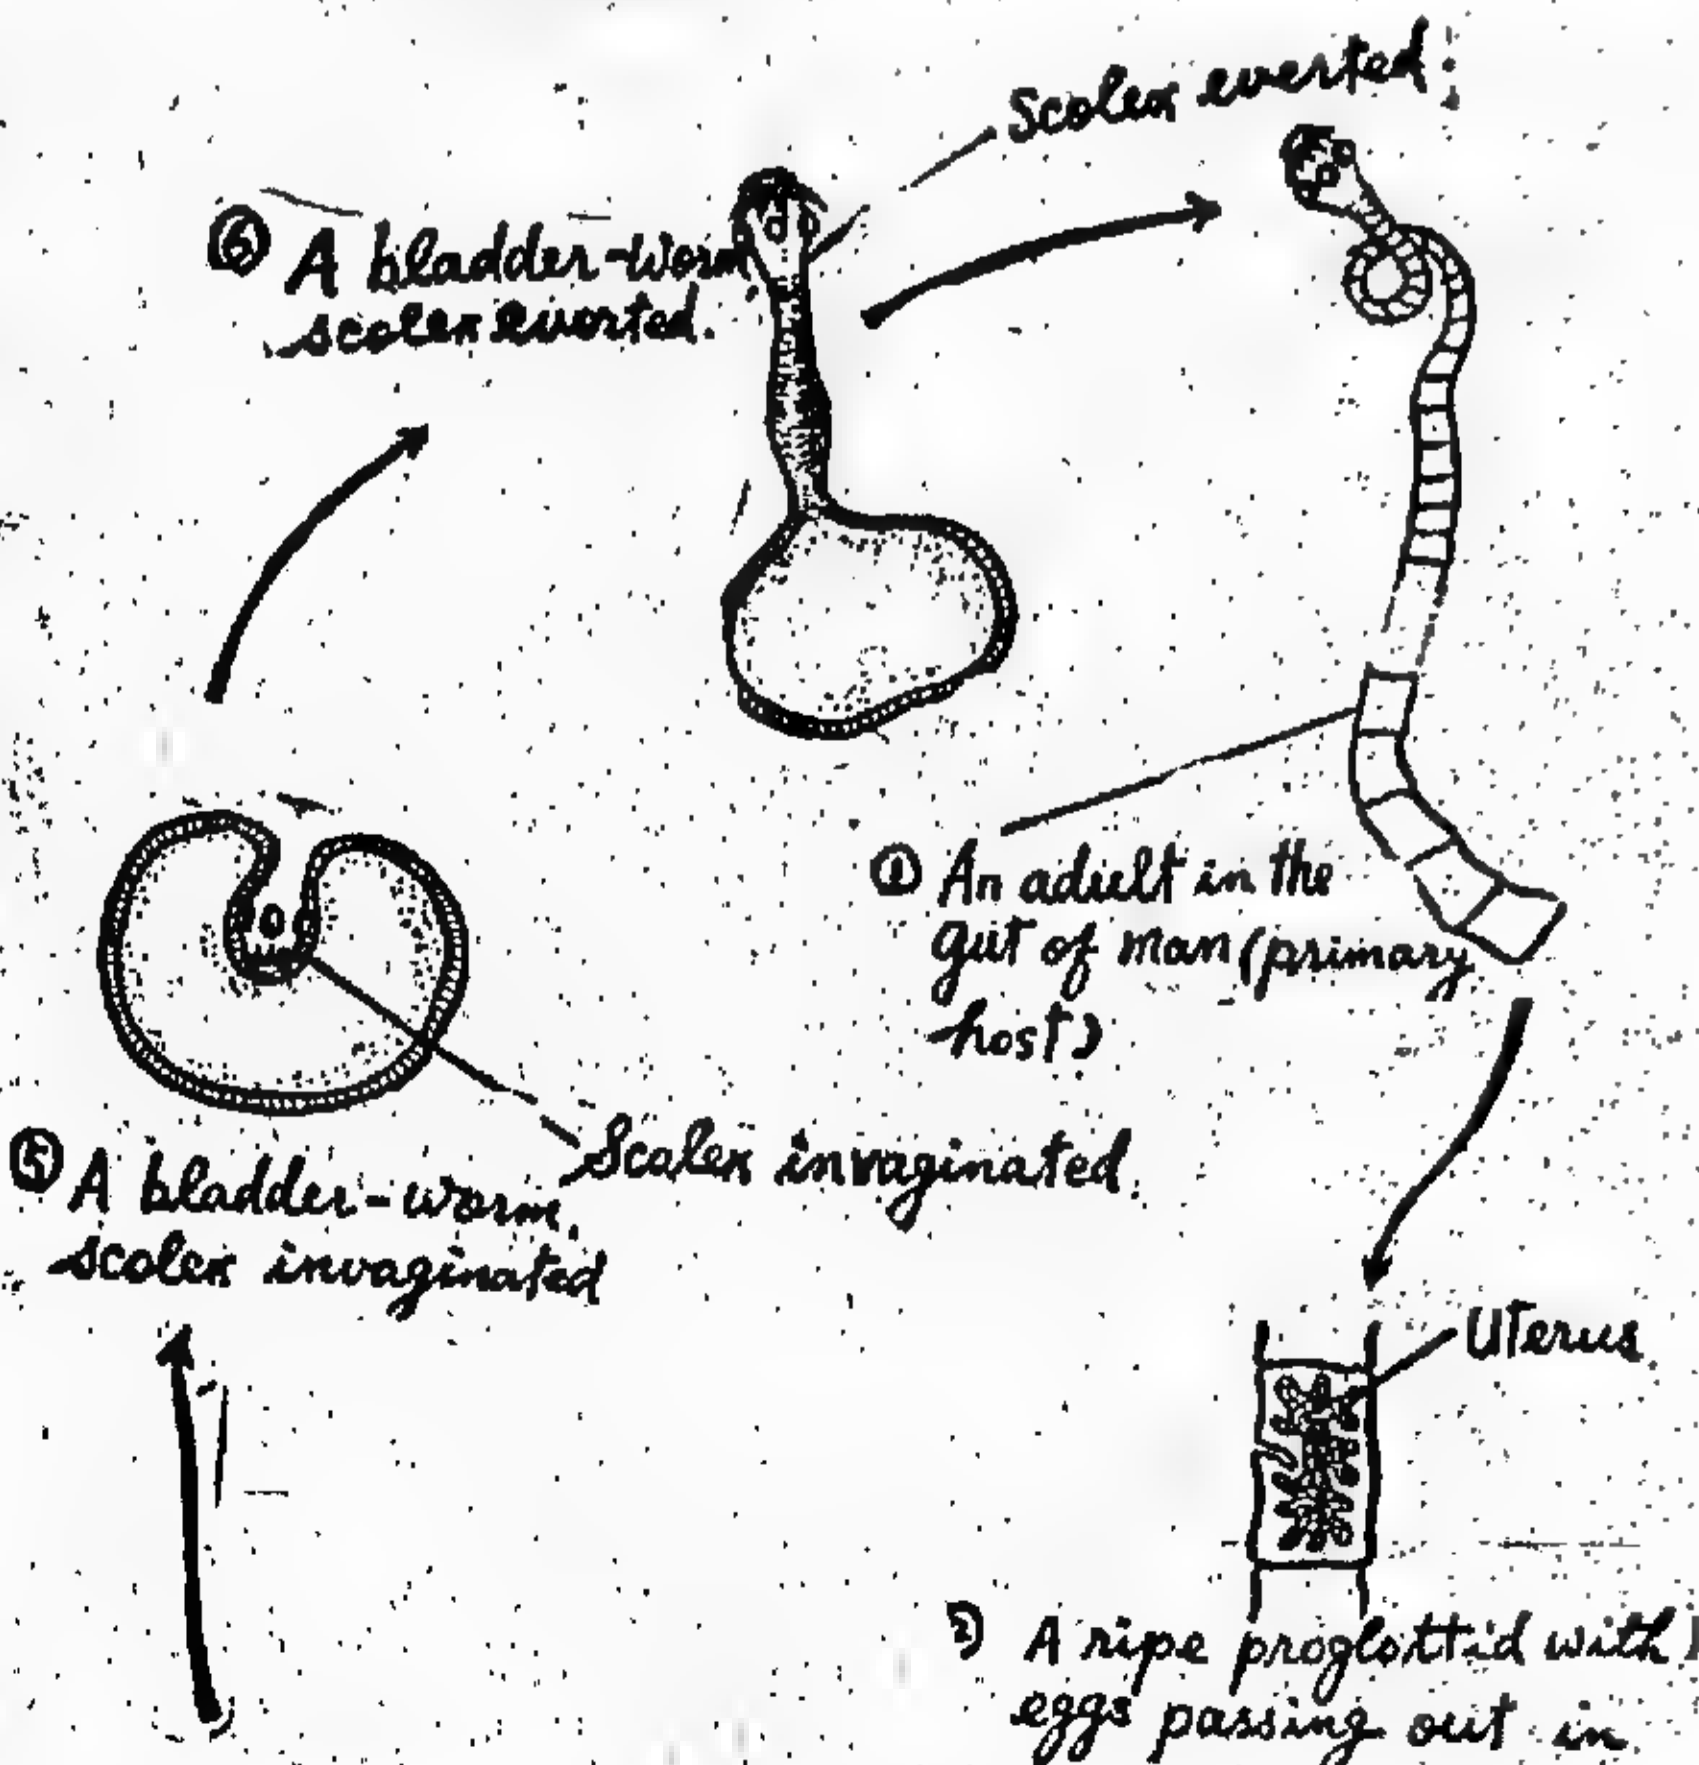 Scolex everted
⑥ A bladder-worm
scolex everted.
① An adult in the
gut of man (primary
host)
Scolex invaginated.
⑤ A bladder-worm,
scolex invaginated
Uterus
2) A ripe proglottid with
eggs passing out in